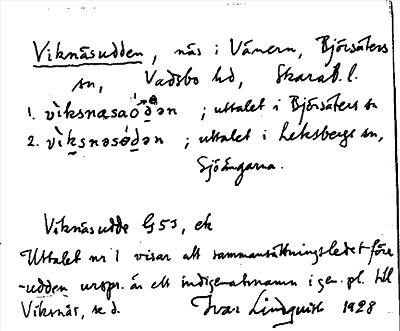 Viknäsudden, näs i Vänern, Björsäters
sn, Vadsbo hd, Skarab. l.
1. vìksnæsaódən ; uttalet i Björsäters sn
2. vìksnəsódən ; uttalet i Leksbergs sn,
Sjöängarna.
Viknäsudde G 53, ek
Uttalet nr 1 visar att sammansättningsledet före
-udden urspr. är ett indigenatnamn i gen. pl. till
Viknäs, se d. Ivar Lindquist 1928